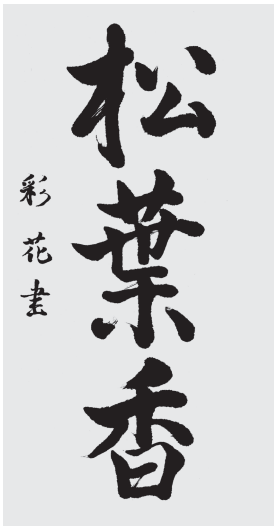 松葉香
彩花書